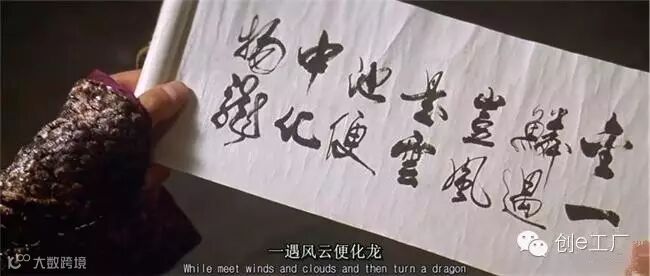 金鱗豈是池中物
一遇風雲便化龍
一遇风云便化龙
While meet winds and clouds and then turn a dragon
大数跨境
创e工厂